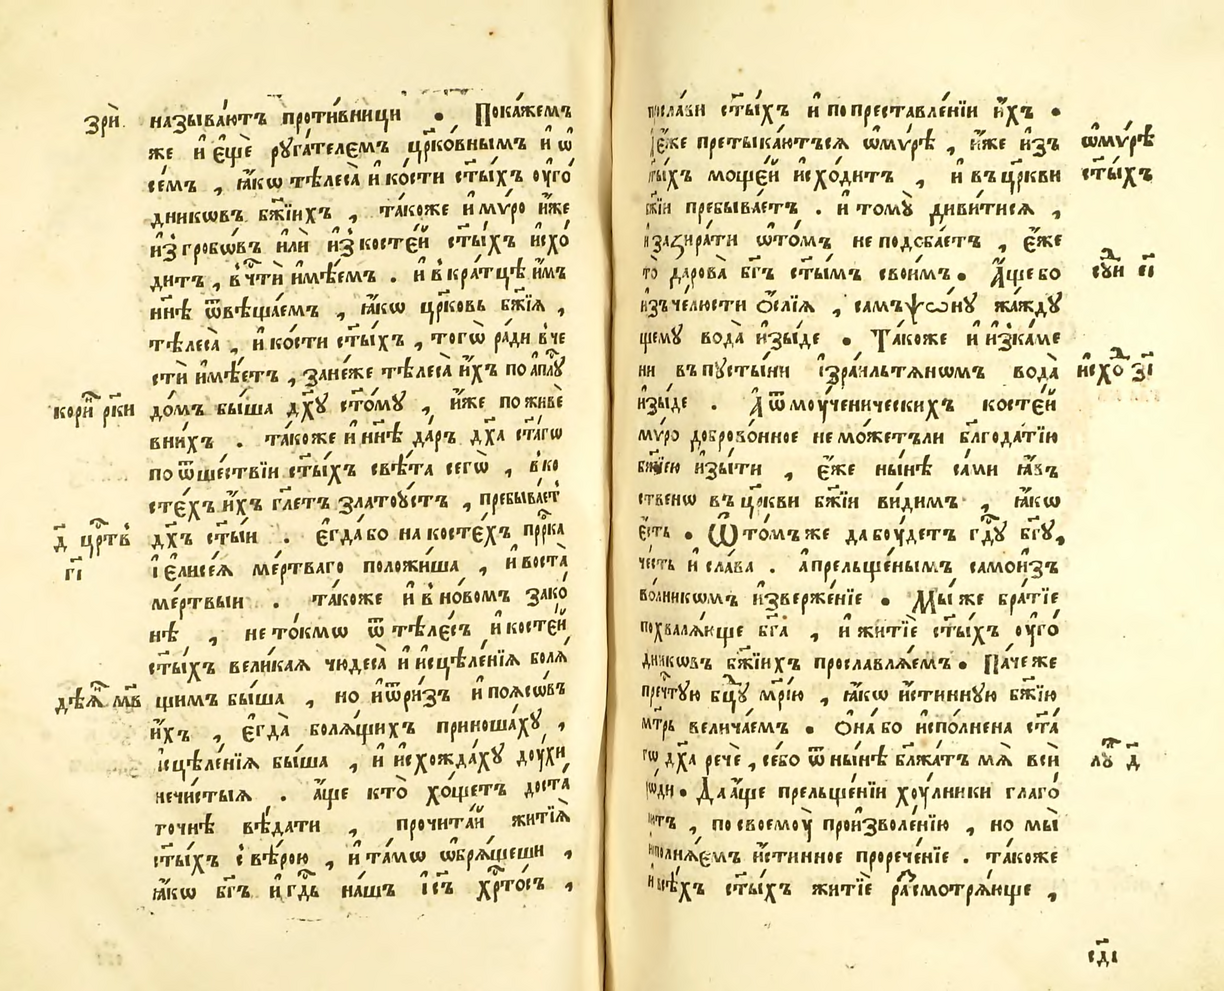 зрѝ. називаютъ проти́вници . Пока́жемъ
же и҆ є҆ще рꙋга́телемъ цр҃ко́внымъ и҆ ѡ҆
се́мъ , ꙗ҆́кѡ тѣлеса̀ и҆ ко́сти ст҃ы́хъ оуго́
дникѡвъ бж҃їихъ , та́коже и҆ мѵ́ро и҆́же
и҆з̾ гробѡ́въ и҆лѝ и҆з̾ косте́й ст҃ы́хъ и҆схо́
дитъ , в̾чтѝ и҆мѣ́емъ . и҆ в̾кра́тцѣ и҆́мъ
нн҃ѣ ѿвѣща́емъ , ꙗ҆́кѡ цр҃ковь бж҃їѧ ,
тѣлеса̀ , и҆ ко́сти ст҃ы́хъ , тогѡ̀ ра́ди в̾че
стѝ и҆мѣ́етъ , зане́же тѣлеса̀ и҆́хъ по а҆пл҃ꙋ
кори҆́н рк҃и до́мъ бы́ша дх҃ꙋ ст҃о́мꙋ , и҆́же по живѐ
вни́хъ . та́коже и҆ нн҃ѣ да́ръ дх҃а ст҃а́гѡ
по ѿше́ствїи ст҃ы́хъ свѣ́та сегѡ̀ , в̾ко
сте́хъ и҆́хъ гл҃етъ златоу́стъ , пребыва́етъ
д҃ црⷭ҇тв̾ дх҃ъ ст҃ы́и . є҆гда́ бо на косте́хъ прⷪ҇рка
г҃і і҆ є҆лисе́ѧ ме́ртваго положи́ша , и҆ воста̀
ме́ртвыи . та́коже и҆ в̾ но́вомъ зако́
нѣ , не то́кмѡ ѿ тѣле́съ и҆ косте́й
ст҃ы́хъ вели́каѧ чюдеса̀ и҆ и҆сцѣле́нїѧ болѧ́
дѣѧ҆́н мв҃ щимъ бы́ша , но и҆ ѿ ри́зъ и҆ поѧсѡ́въ
и҆́хъ , є҆гда̀ болѧ́щихъ приноша́хꙋ ,
і҆сцѣле́нїѧ бы́ша , и҆ и҆схожда́хꙋ доу́хи
нечи́стыѧ . а҆́ще кто̀ хо́щетъ доста́
точнѣ вѣ́дати , прочита́й житїѧ̀
ст҃ы́хъ с̾ вѣ́рою , и҆ та́мѡ ѡ҆брѧ́щеши ,
ꙗ҆́кѡ бг҃ъ и҆ гдⷭ҇ь на́шъ і҆с҃ъ хрⷭ҇то́съ ,
просла́ви ст҃ы́хъ и҆ по преставле́нїи и҆́хъ .
І҆є҆́же претыка́ютъсѧ ѡ҆ мѵ́рѣ , и҆́же и҆зъ ѡ҆ мѵ́рѣ
ст҃ы́хъ моще́й и҆схо́дитъ , и҆ въ цр҃кви ст҃ы́хъ
бж҃їи пребыва́етъ . и҆ томꙋ̀ диви́тисѧ ,
и҆ зазира́ти ѡ҆ то́мъ не подоба́етъ , є҆́же
то̀ дарова̀ бг҃ъ ст҃ы́мъ свои́мъ . А҆́ще бо сꙋди є҃і
и҆зъ че́люсти ѻ҆́слїѧ , самъѱѡ́нꙋ жа́ждꙋ
щемꙋ вода̀ и҆зы́де . Та́коже и҆ и҆з̾ ка́ме
ни въ пꙋсты́ни і҆зраи́льтѧнѡмъ вода̀ и҆схо з҃і
и҆зы́де . А҆ ѿ моу́ченическихъ косте́й
мѵ́ро добровонное не мо́жетъ ли бл҃года́тїю
бж҃їею и҆зы́ти , є҆́же ны́нѣ са́ми ꙗ҆́въ
ственѡ въ цр҃кви бж҃їи ви́димъ , ꙗ҆́кѡ
є҆́сть . Ѡ҆ то́мъ же да боу́детъ гдⷭ҇ꙋ бг҃ꙋ,
че́сть и҆ сла́ва . а҆ прельще́нымъ самои҆з̾
во́лникѡмъ и҆зверже́нїе . Мы́ же бра́тїе
похвалѧ́юще бг҃а , и҆ житїѐ ст҃ы́хъ оуго́
дникѡвъ бж҃їихъ прославлѧ́емъ . Па́че же
прⷱ҇тꙋю бцⷣꙋ мр҃і́ю , ꙗ҆́кѡ и҆́стиннꙋю бж҃їю
мт҃рь велича́емъ . Ѻ҆на́ бо и҆спо́лнена ст҃а́
гѡ дх҃а речѐ , се́бо ѿ ны́нѣ бл҃жа́тъ мѧ̀ всѝ лꙋк д҃
ро́ди . Да а҆́ще прельще́нїи хоу́лники глаго́
лютъ , по своемоу̀ произволе́нїю , но мы̀
и҆сполнѧ́емъ и҆́стинное прорече́нїе . та́коже
и҆ всѣ́хъ ст҃ы́хъ житїѐ ра́смотрѧюще ,
сд҃і